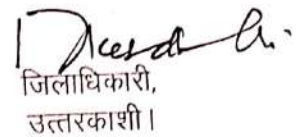 जिलाधिकारी,
उत्तरकाशी।